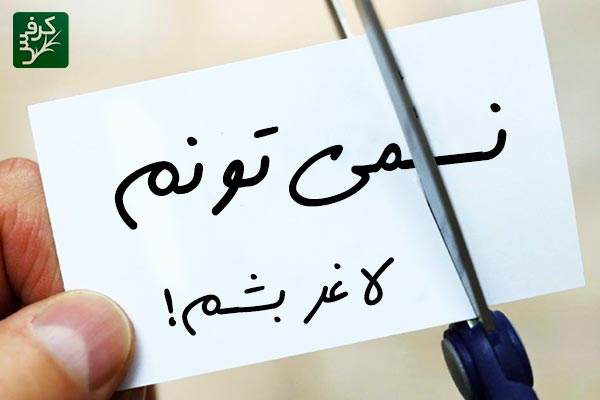 کرفس
نمی تونم
لاغر بشم!